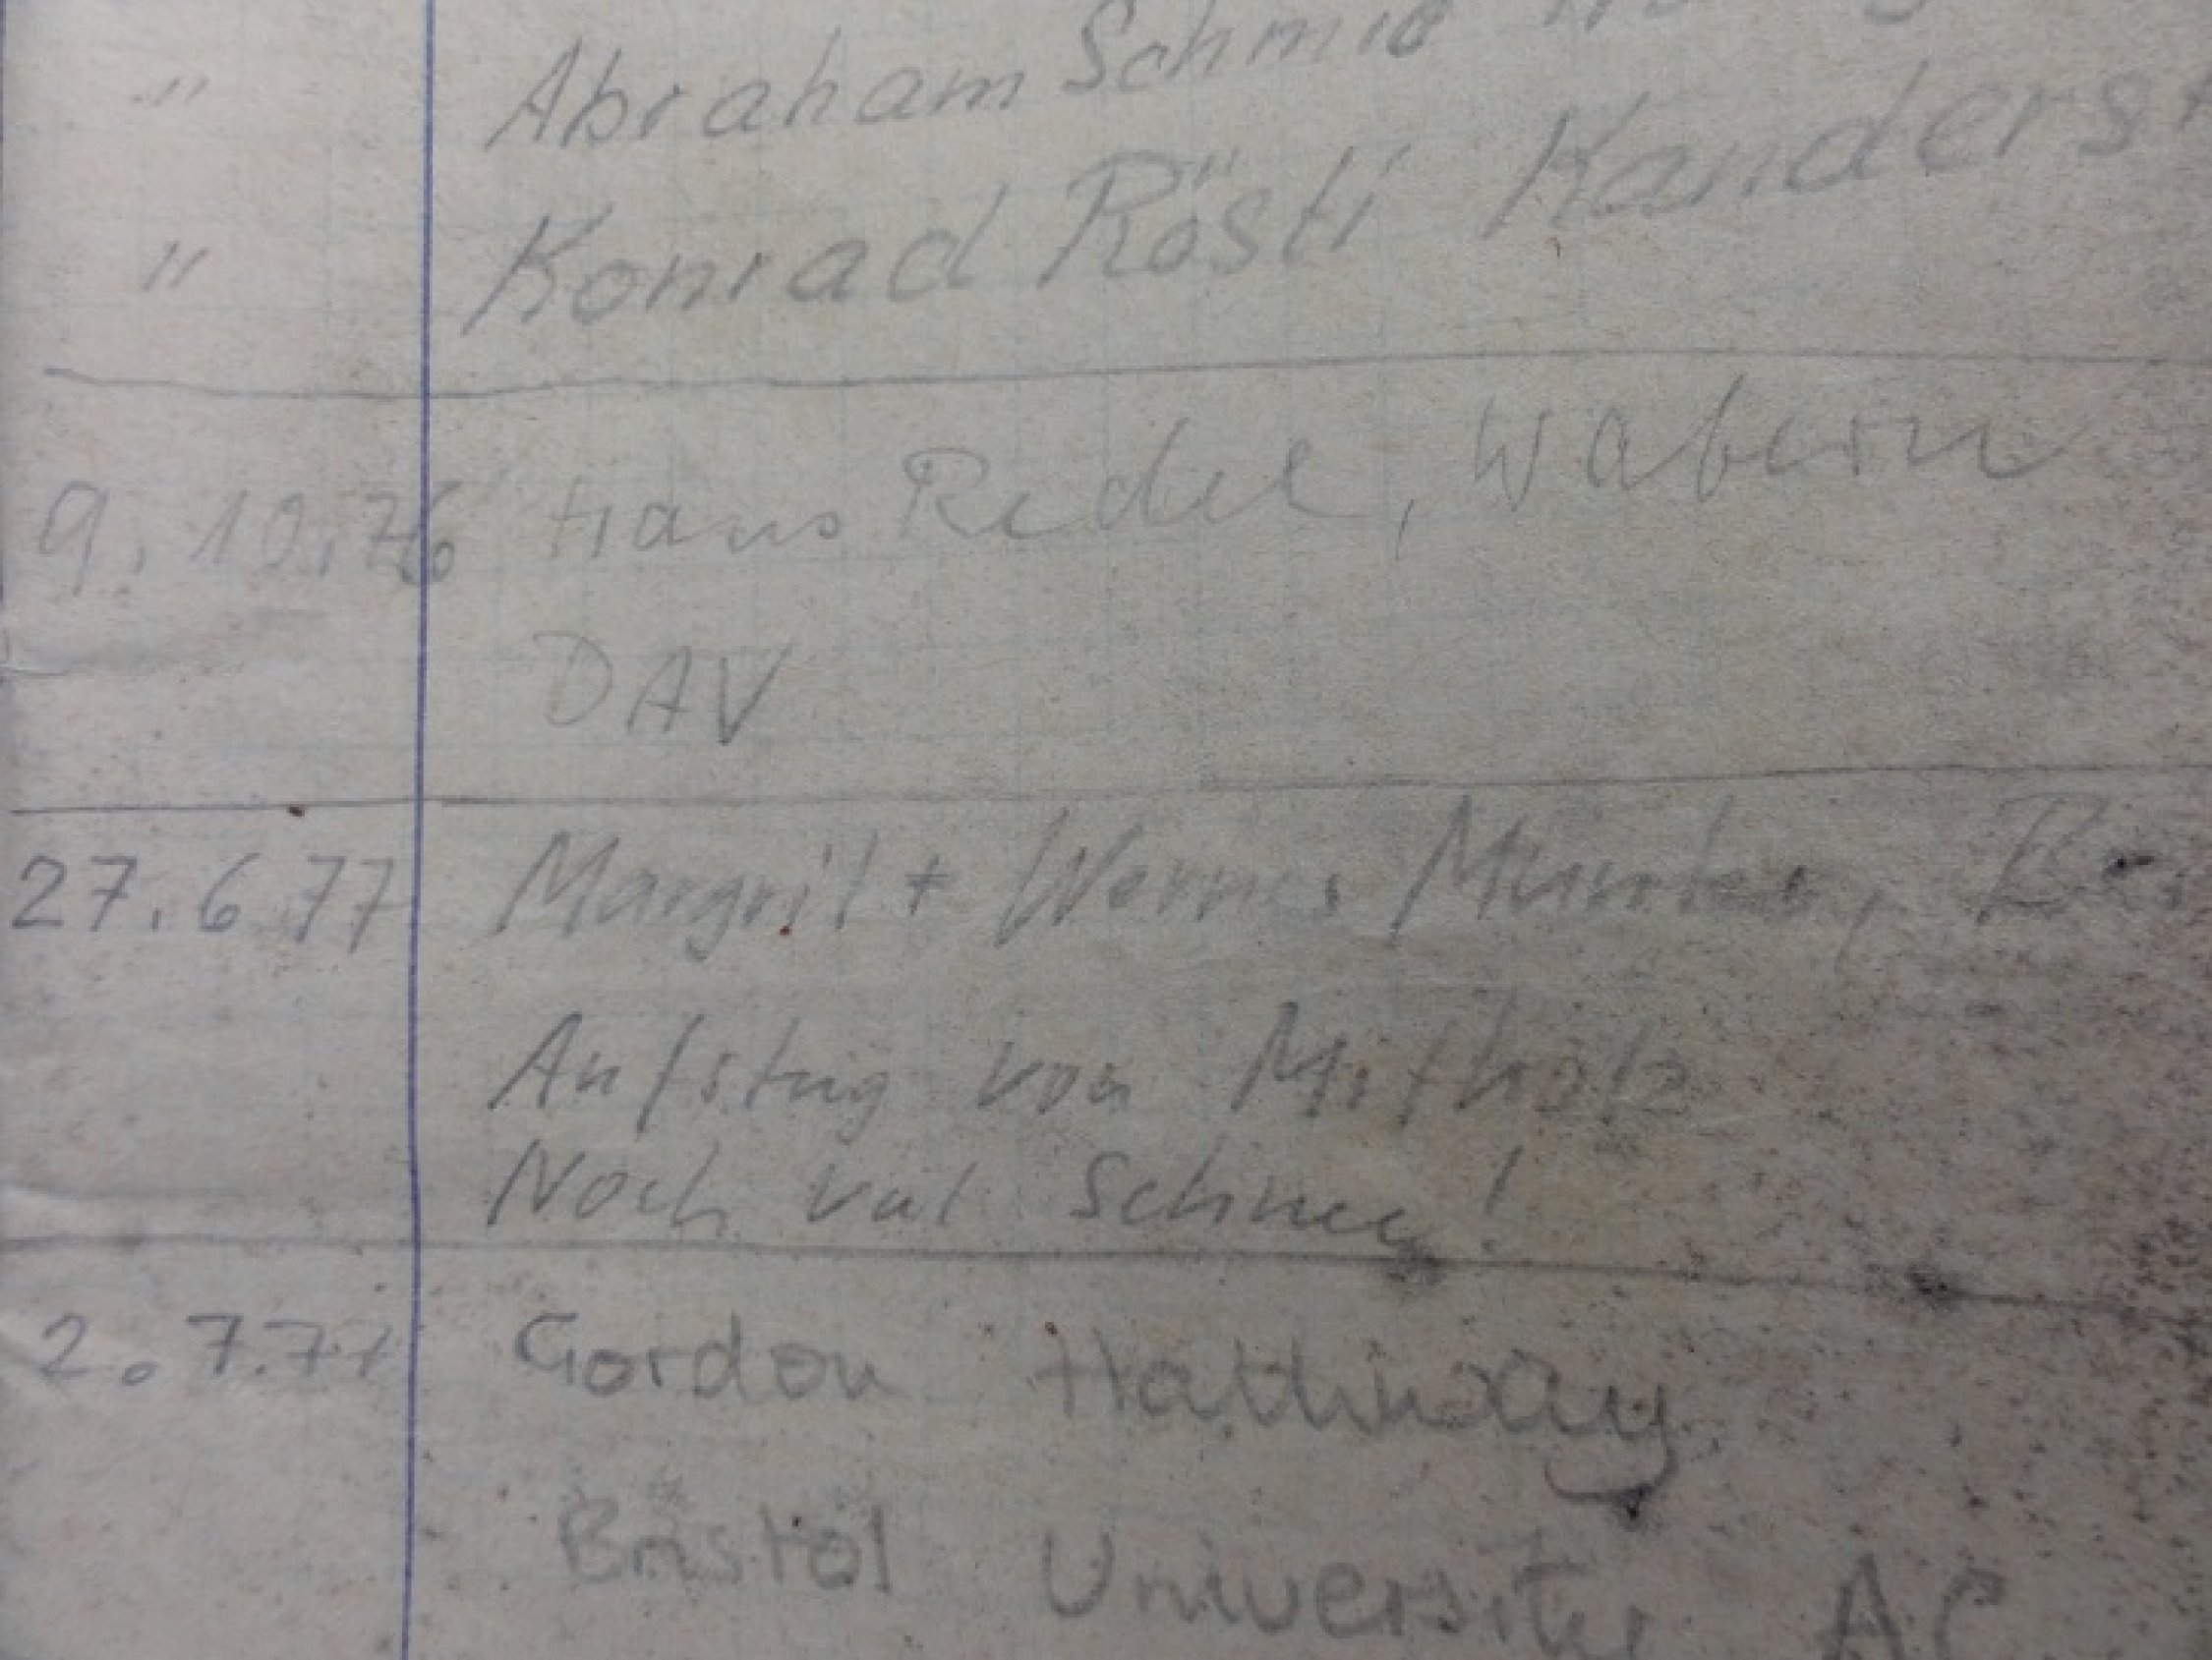 " Abraham Schmid
" Konrad Rösti Kanderst
9.10.76 Hans Redel, Wabern
DAV
27.6.77 Margrit + Werner Munter, Be
Aufstieg von Mitholz
Noch viel Schnee!
2.7.77 Gordon Hathway
Bristol University AC